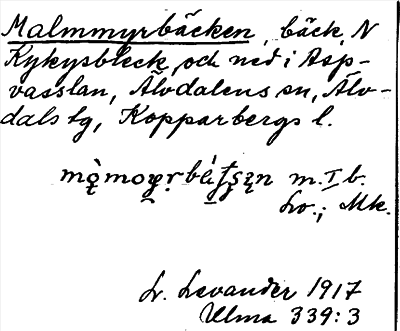 Malmmyrbäcken, bäck, N
Kykysbleck och ned i Asp-
vasslan, Älvdalens sn, Älv-
dals tg, Kopparbergs l.
m. I b.
Lo.; Mk.
Lr. Levander 1917
Ulma 339:3